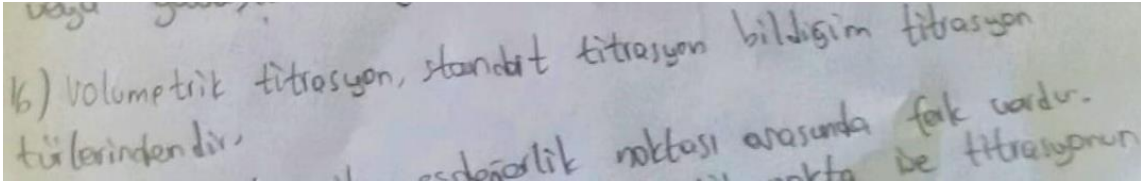 veya
16) Volumetrik titrasyon, standart titrasyon bildiğim titrasyon
türlerindendir.
eşdeğerlik noktası arasında fark vardır.
nokta ise titrasyonun